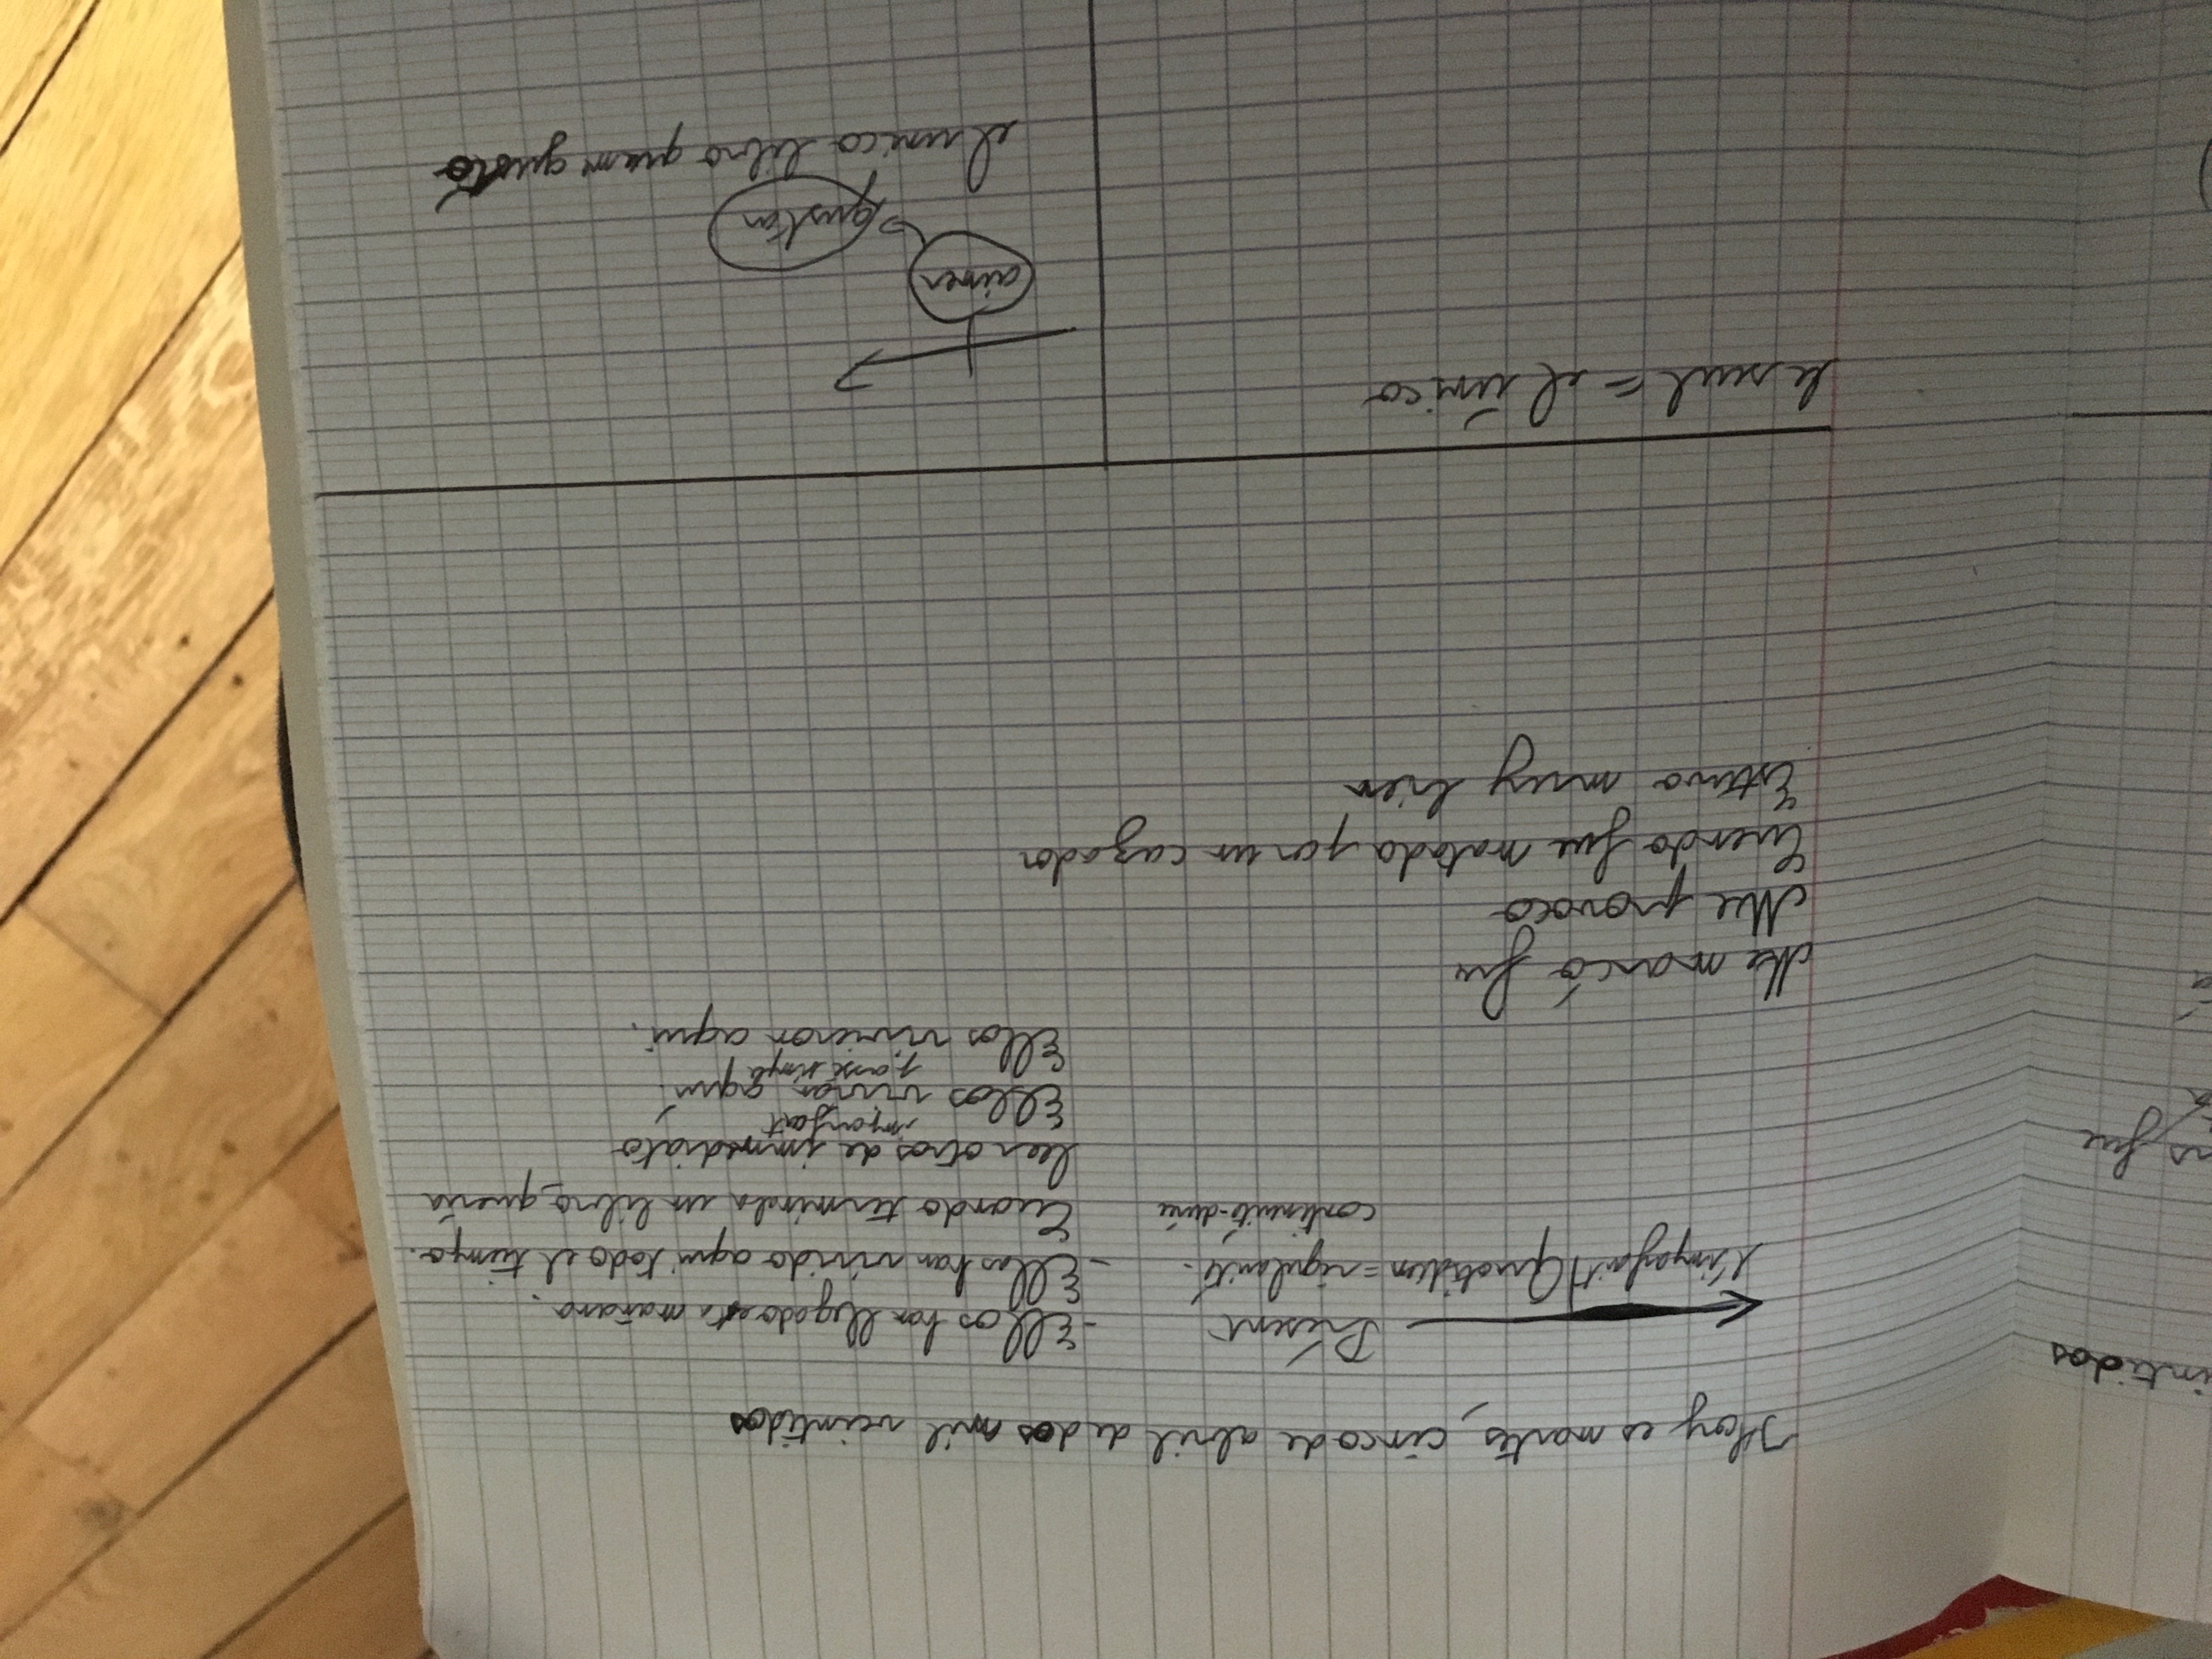 Hoy es martes, cinco de abril de dos mil veintidos
Présent
l'imparfait Quotidien = régularité.
continuité-durée
- Ellos han llegado esta mañana.
- Ellas han vivido aquí todo el tiempo.
Cuando terminaba un libro, quería
leer otros de immediato
imparfait
Ellos vivían aquí.
passé simple
Ellos vivieron aqui.
Me marcó fue
Me provoco
Cuendo fue matada por un cazador
Estuvo muy bien
le seul = el único
aimer
gustar
el unico libro que me gustó
intidos
fue